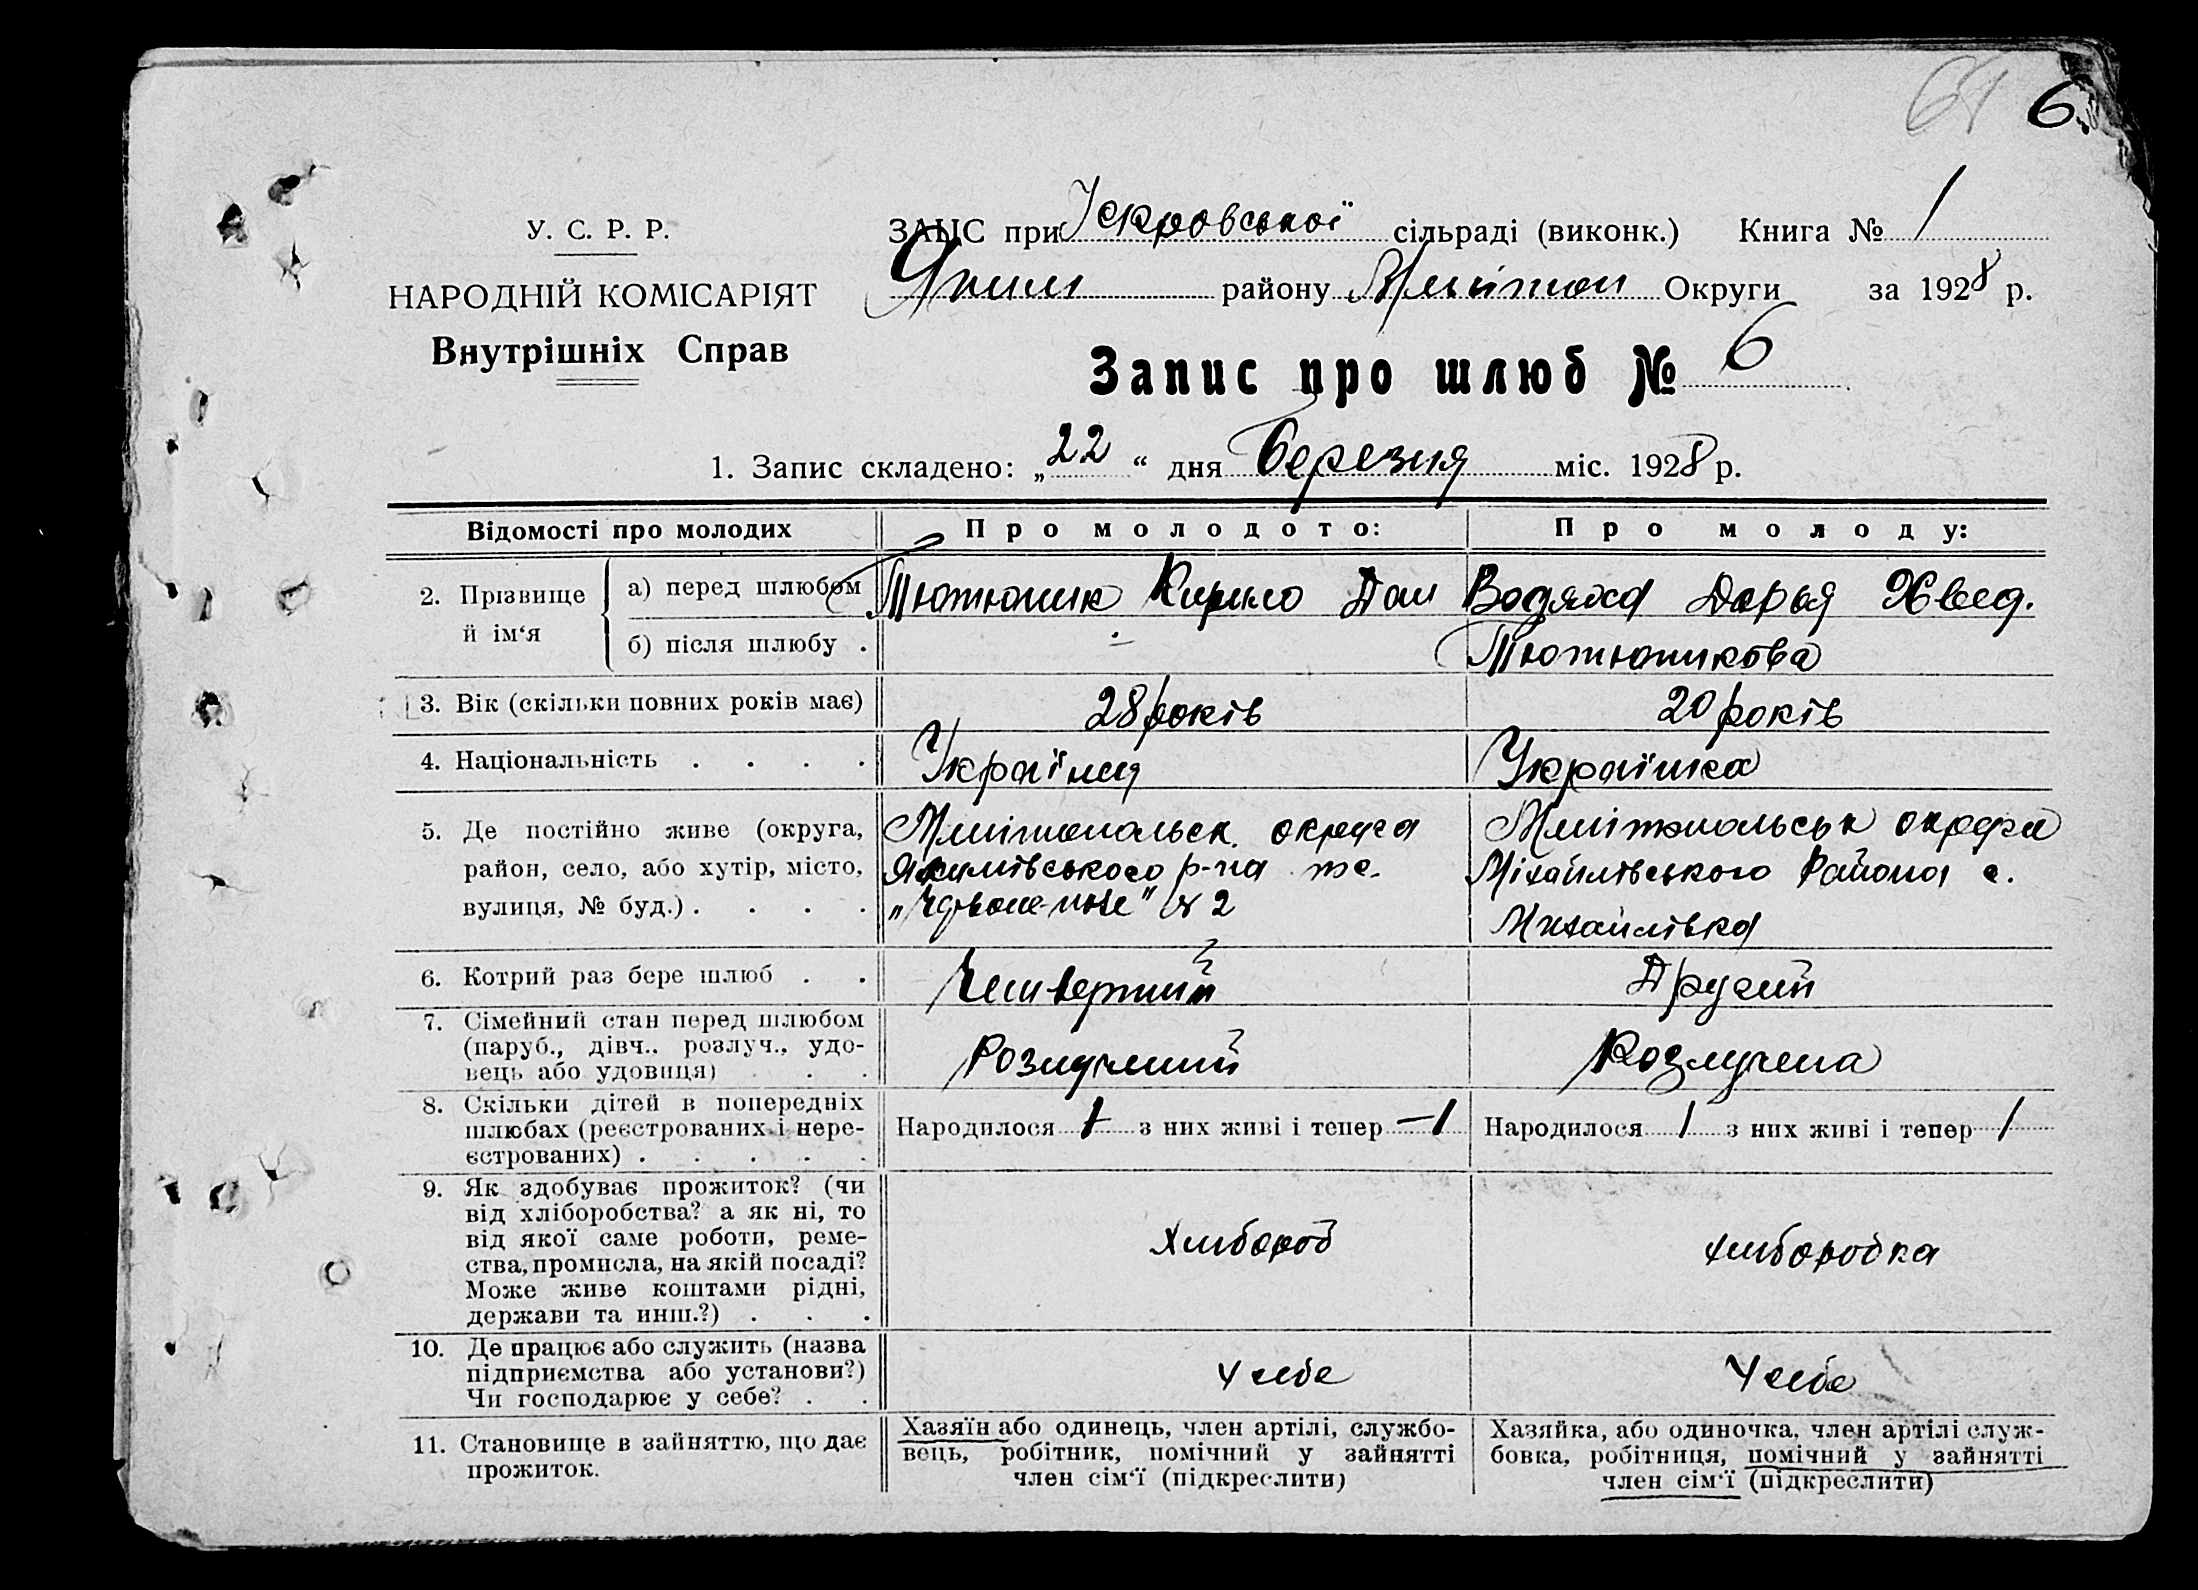 64 6.
У. С. Р. Р.
НАРОДНІЙ КОМІСАРІЯТ
Внутрішніх Справ
ЗАГС при Іскровської сільраді (виконк.) Книга № 1
Яким району Меліт Округи за 1928 р.
Запис про шлюб № 6
1. Запис складено: „22“ дня березня міс. 1928 р.
Відомості про молодих Про молодого: Про молоду:
2. Прізвище й ім‘я
а) перед шлюбом Тютюник Кирило Дан Водяха Дарья Хвед.
б) після шлюбу . ÷ Тютюникова
3. Вік (скільки повних років має) 28 років 20 років
4. Національність . . . . Україн Українка
5. Де постійно живе (округа,
район, село, або хутір, місто,
вулиця, № буд.) . . . .
Мелітопольськ. округа
Якимівського р-на
№ 2
Мелітопольськ округи
Міхайлівського Района с.
Михайлівка
6. Котрий раз бере шлюб . . Четвертий Другий
7. Сімейний стан перед шлюбом
(паруб., дівч., розлуч., удо-
вець або удовиця) . . .
Розлучений Розлучена
8. Скільки дітей в попередніх
шлюбах (реєстрованих і нере-
єстрованих) . . . . .
Народилося 1 з них живі і тепер —1 Народилося 1 з них живі і тепер 1
9. Як здобуває прожиток? (чи
від хліборобства? а як ні, то
від якої саме роботи, реме-
ства, промисла, на якій посаді?
Може живе коштами рідні,
держави та инш.?) . . .
Хлибороб хлиборобка
10. Де працює або служить (назва
підприємства або установи?)
Чи господарює у себе? . .
У себе У себе
11. Становище в зайняттю, що дає
прожиток.
Хазяїн або одинець, член артілі, службо-
вець, робітник, помічний у зайнятті
член сім‘ї (підкреслити)
Хазяйка, або одиночка, член артілі служ-
бовка, робітниця, помічний у зайнятті
член сім‘ї (підкреслити)